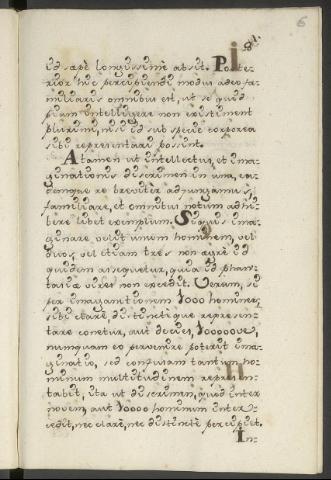 6
id sæpe longissimè absit. Poste-
rior hic percipiendi modus adeo fa-
miliaris omnibus est, ut se quid-
piam intelligere non existiment
plurimi, nisi id sub specie corporea
sibi repræsentari possint.
Attamen ut intellectus, et ima-
ginationis discrimen in una, ea-
demque re breviter adjungamus,
familiare, et omnibus notum adhi-
bere libet exemplum. Siquis ima-
ginare velit unum hominem, vel
duos, vel etiam tres non ægrè id
quidem assequetur, quia id phan-
tasiæ vires non excedit. Verum, si
per imaginationem 1000 homines
sibi clarè, distinctèque represen-
tare conetur, aut decies,
numquam eo pervenire poterit ima-
ginatio, sed confusam tantum ho-
minum multitudinem represen-
tabit, ita ut discrimen, quod inter
novem, aut 10000 hominum inter-
cedit, nec clarè, nec distinctè percipiet.
In-